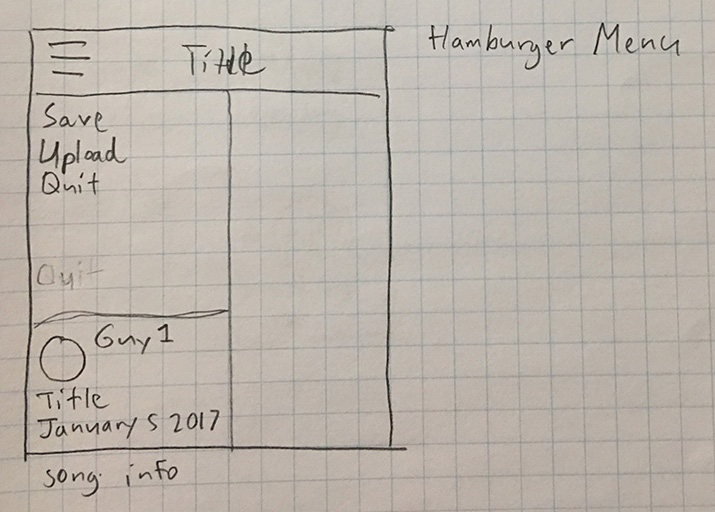 Hamburger Menu
Title
Save
Upload
Quit
Quit
Guy 1
Title
January 5 2017
song info